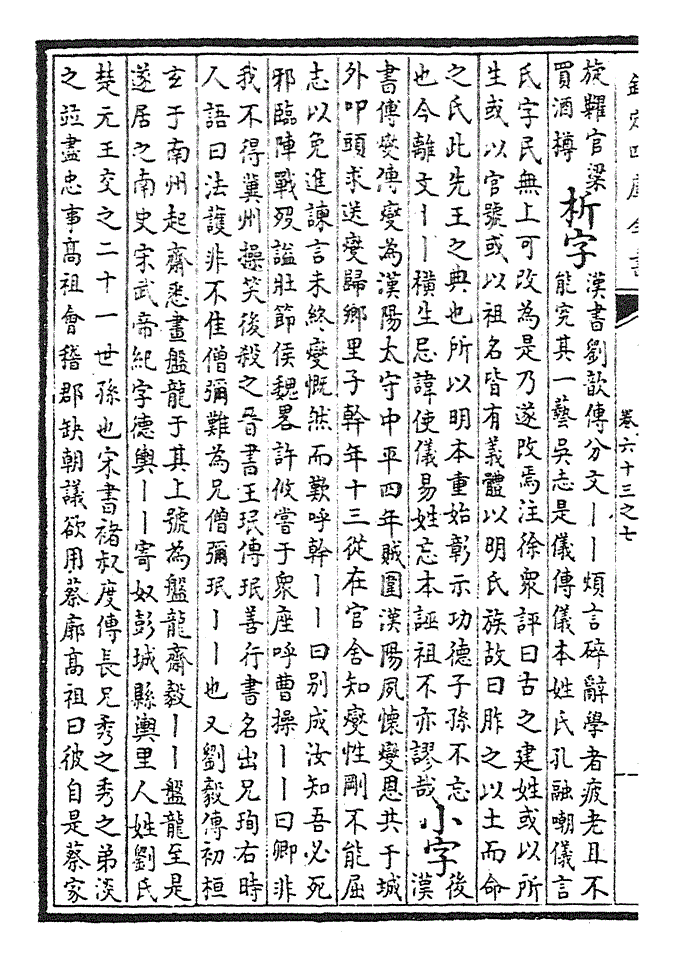 欽定四庫全書
卷六十三之七
旋糶官梁
買酒樽
析字
漢書劉歆傳分文丨丨煩言碎辭學者疲老且不
能究其一藝吳志是儀傳儀本姓氏孔融嘲儀言
氏字民無上可改為是乃遂改焉注徐衆評曰古之建姓或以所
生或以官號或以祖名皆有義體以明氏族故曰胙之以土而命
之氏此先王之典也所以明本重始彰示功德子孫不忘
也今離文丨丨橫生忌諱使儀易姓忘本誣祖不亦謬哉
小字
後
漢
書傅燮傳燮為漢陽太守中平四年賊圍漢陽夙懷燮恩共于城
外叩頭求送燮歸鄉里子幹年十三從在官舍知燮性剛不能屈
志以免進諫言未終燮慨然而歎呼幹丨丨曰別成汝知吾必死
邪臨陣戰歿謚壯節侯魏畧許攸嘗于衆座呼曹操丨丨曰卿非
我不得冀州操笑後殺之晉書王珉傳珉善行書名出兄珣右時
人語曰法護非不佳僧彌難為兄僧彌珉丨丨也又劉毅傳初桓
玄于南州起齋悉畫盤龍于其上號為盤龍齋毅丨丨盤龍至是
遂居之南史宋武帝紀字德輿丨丨寄奴彭城縣輿里人姓劉氏
楚元王交之二十一世孫也宋書褚叔度傳長兄秀之秀之弟淡
之並盡忠事高祖會稽郡缺朝議欲用蔡廓高祖曰彼自是蔡家